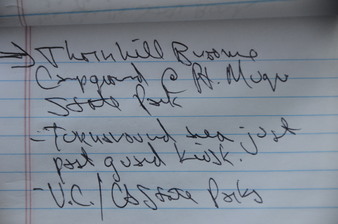 → Thornhill Broome
Campground @ Pt. Mugu
State Park
- Turnaround area just
past guard kiosk.
- V.C./CA State Parks